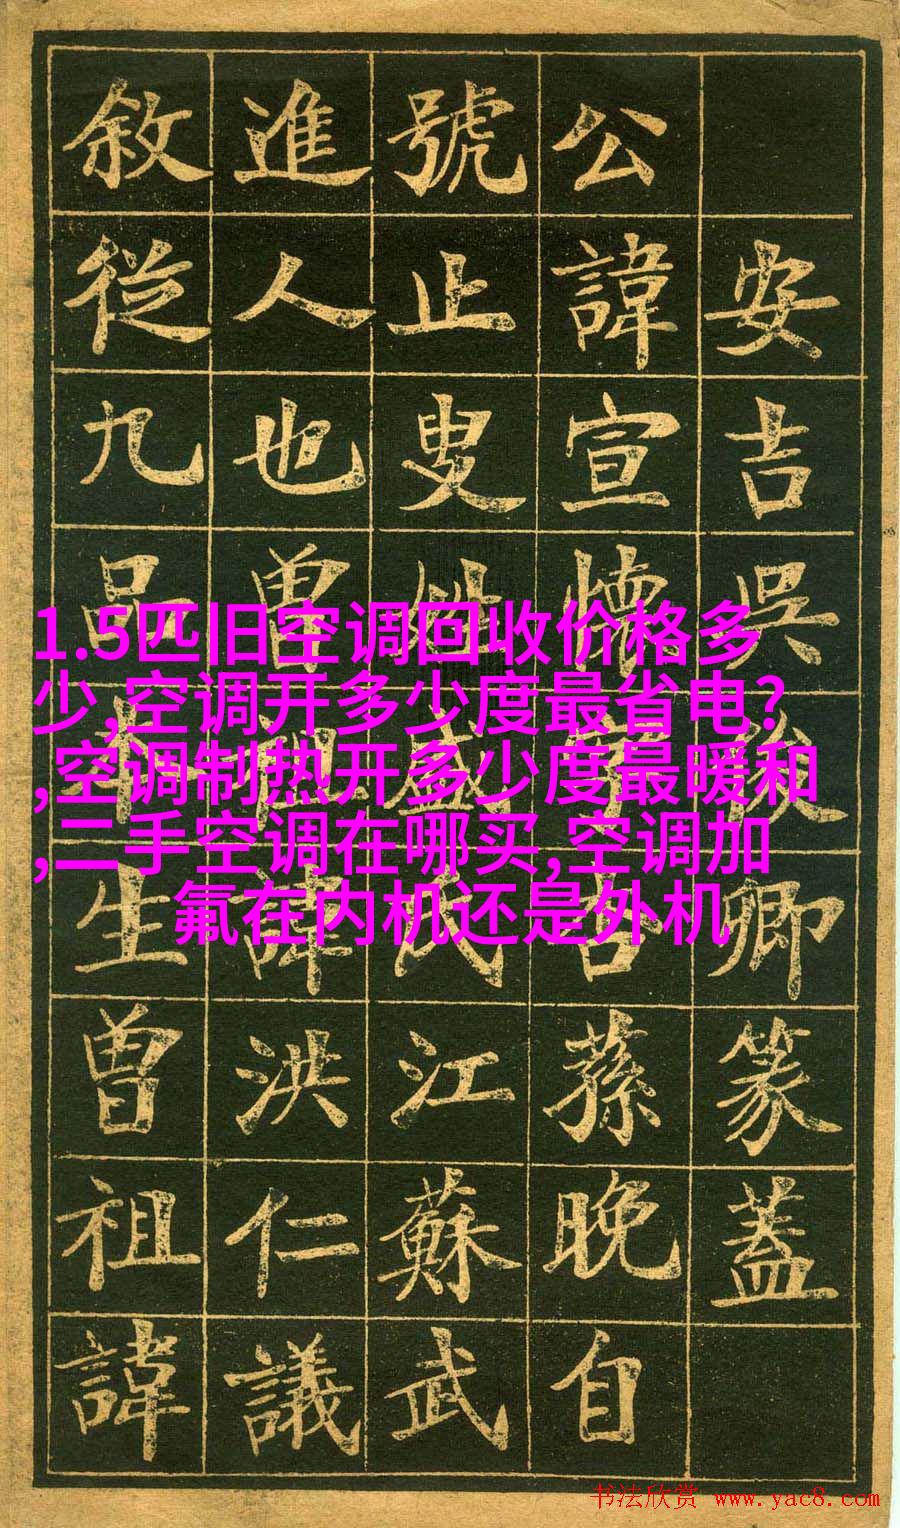 安吉吳俊卿篆蓋
公諱宣懷字杏蓀晚自
號止叟姓盛氏江蘇武
進人也曾祖諱洪仁議
敘從九品本生曾祖諱
1.5匹旧空调回收价格多
少,空调开多少度最省电?
,空调制热开多少度最暖和
,二手空调在哪买,空调加
氟在内机还是外机
书法欣赏 www.yac8.com